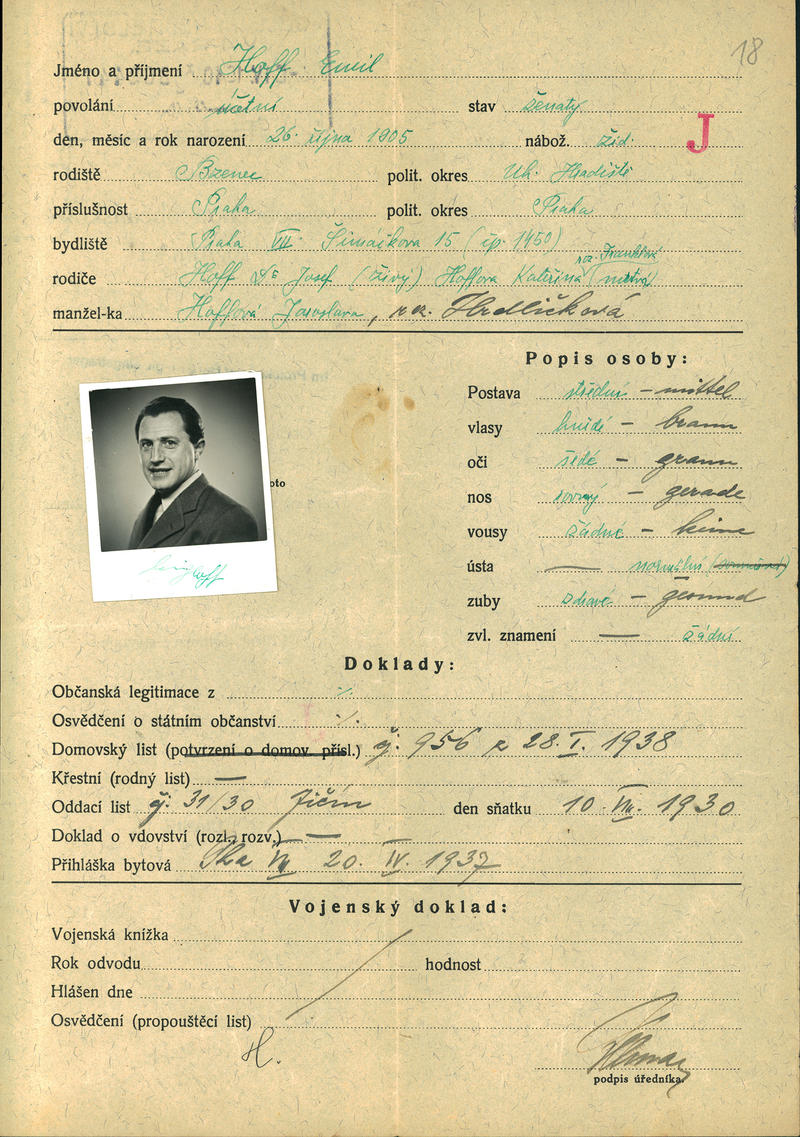 18
Jméno a příjmení Hoff Emil
povolání účetní stav ženatý
den, měsíc a rok narození 26. října 1905 nábož. žid. J
rodiště Bzenec polit. okres Uh. Hradiště
příslušnost Praha polit. okres Praha
bydliště Praha VII. Šimáčkova 15 (čp. 1450)
roz. Franklová
rodiče Hoff Dr Josef (živý) Hoffová Kateřina (mrtvá)
manžel-ka Hoffová Jaroslava, roz. Hrdličková
Popis osoby:
Postava střední – mittel
vlasy hnědé – braun
oči šedé – graun
nos rovný – gerade
vousy žádné – keine
oto
ústa — normální
zuby zdravé – gesund
zvl. znamení — žádné
Doklady:
Občanská legitimace z ./.
Osvědčení o státním občanství ./.
Domovský list (potvrzení o domov. přísl.) čj. 956 z 28. I. 1938
Křestní (rodný list) —
Oddací list čj. 31/30 Jičín den sňatku 10. VII. 1930
Doklad o vdovství (rozl., rozv.) — —
Přihláška bytová Pha VII 20. IV. 1937
Vojenský doklad:
Vojenská knížka
Rok odvodu hodnost
Hlášen dne
Osvědčení (propouštěcí list)
H.
podpis úředníka.